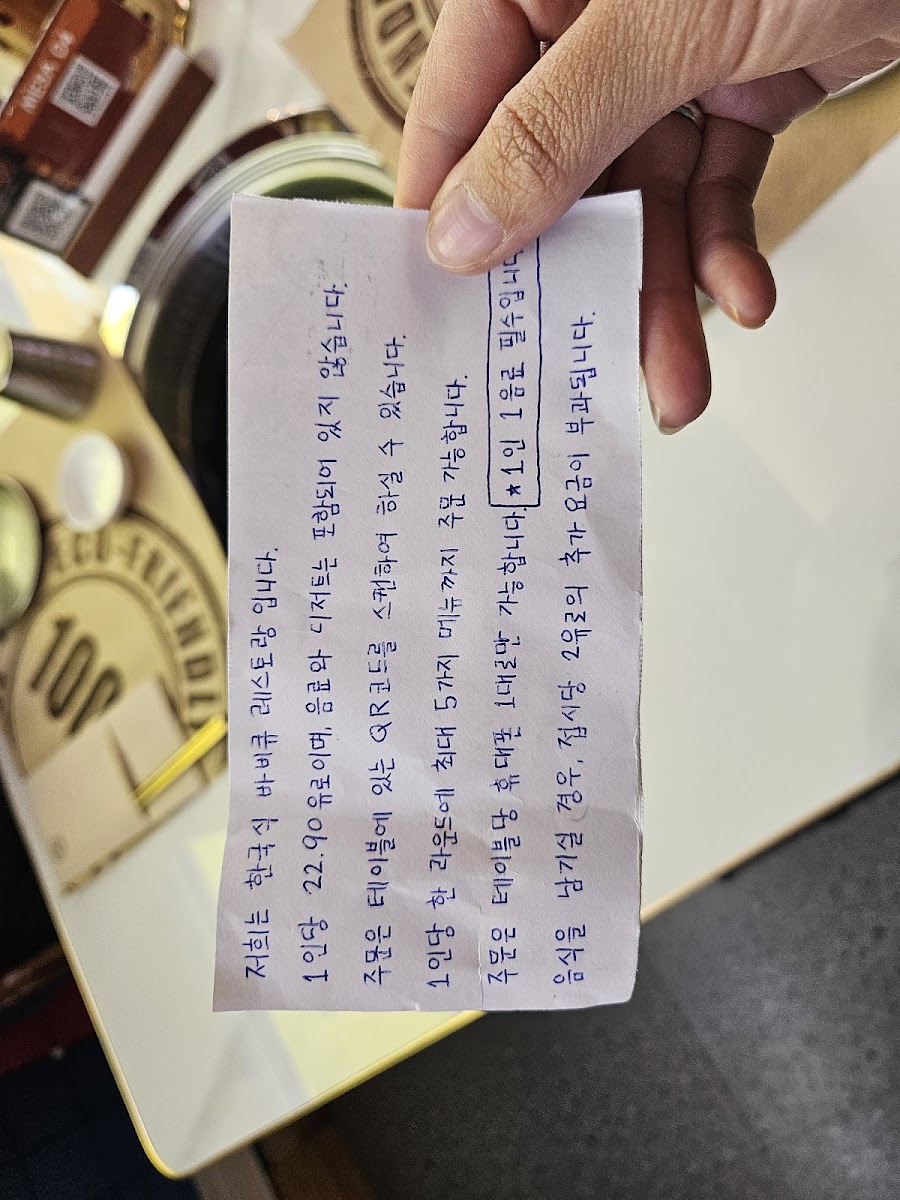 저희는 한국식 바비큐 레스토랑 입니다.
1인당 22.90유로이며, 음료와 디저트는 포함되어 있지 않습니다.
주문은 테이블에 있는 QR코드를 스캔하여 하실 수 있습니다.
1인당 한 라운드에 최대 5가지 메뉴까지 주문 가능합니다.
주문은 테이블당 휴대폰 1대로만 가능합니다. *1인 1음료 필수입니다
음식을 남기실 경우, 접시당 2유로의 추가 요금이 부과됩니다.
MESA 04
ECO-FRIENDLY
100